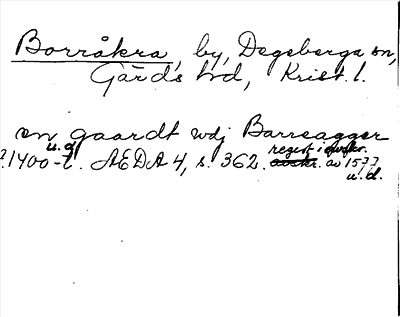 Borråkra, by, Degeberga sn,
Gärds hd, Krist. l.
en gaardt wdj Barreagger
u.å. regest i avskr.
?1400-t. AEDA 4, s. 362. avskr. av 1577
u.d.